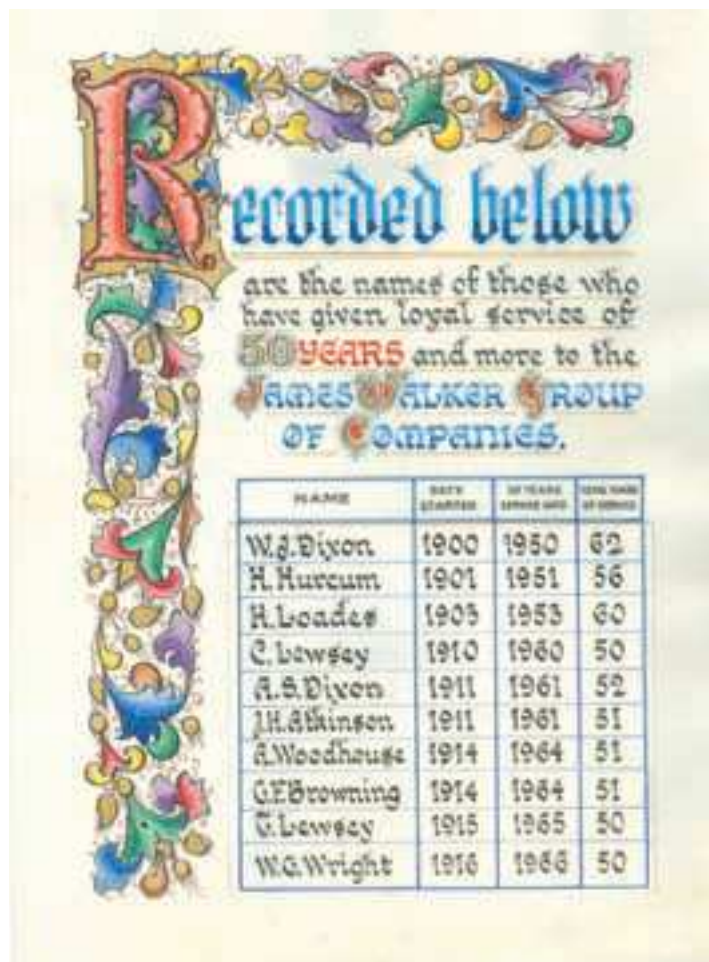 Recorded below
are the names of those who
have given loyal service of
50 YEARS and more to the
JAMES WALKER GROUP
OF COMPANIES.
NAME DATE STARTED 50 YEARS SERVICE INTO TOTAL YEARS OF SERVICE
W.J.Dixon 1900 1950 62
H.Hurcum 1901 1951 56
H.Loades 1903 1953 60
C.Lewsey 1910 1960 50
A.S.Dixon 1911 1961 52
J.H.Atkinson 1911 1961 51
A.Woodhouse 1914 1964 51
G.F.Browning 1914 1964 51
G.Lewsey 1915 1965 50
W.G.Wright 1916 1966 50